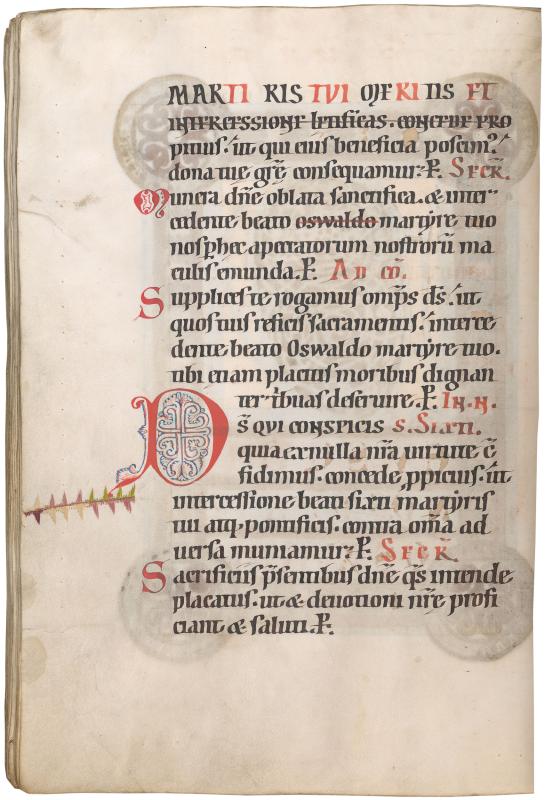 MARTIRIS TUI OSWALDI OFFERTIS ET
INTERCESSIONE beatificas. CONCEDE PRO
pitius. ut qui eius beneficia poscim᷒.
dona tue grē consequamur. P̄. SECR̄.
Munera dn̄e oblata sanctifica. & inter
cedente beato oswaldo martyre tuo
nos p̱ hec a peccatorum nostrorū ma
culis emunda. P̄. AD CŌ.
Supplices te rogamus omp̄s ds̄. ut
quos tuis reficis sacramentis. interce
dente beato Oswaldo martyre tuo.
tibi etiam placitis moribus dignan
ter tribuas deseruire. P̄.
DS̄ QVI CONSPICIS S. SIXTI.
quia ex nulla nr̄a uirtute c̄
fidimus. concede ppicius. ut
intercessione beati sixti martyris
tui atq; pontificis. contra om̄a ad
uersa muniamur. P̄. SECR̄
Sacrificiis p̄sentibus dn̄e qs̄ intende
placatus. ut & deuotioni nr̄e profi
ciant & saluti. P̄.